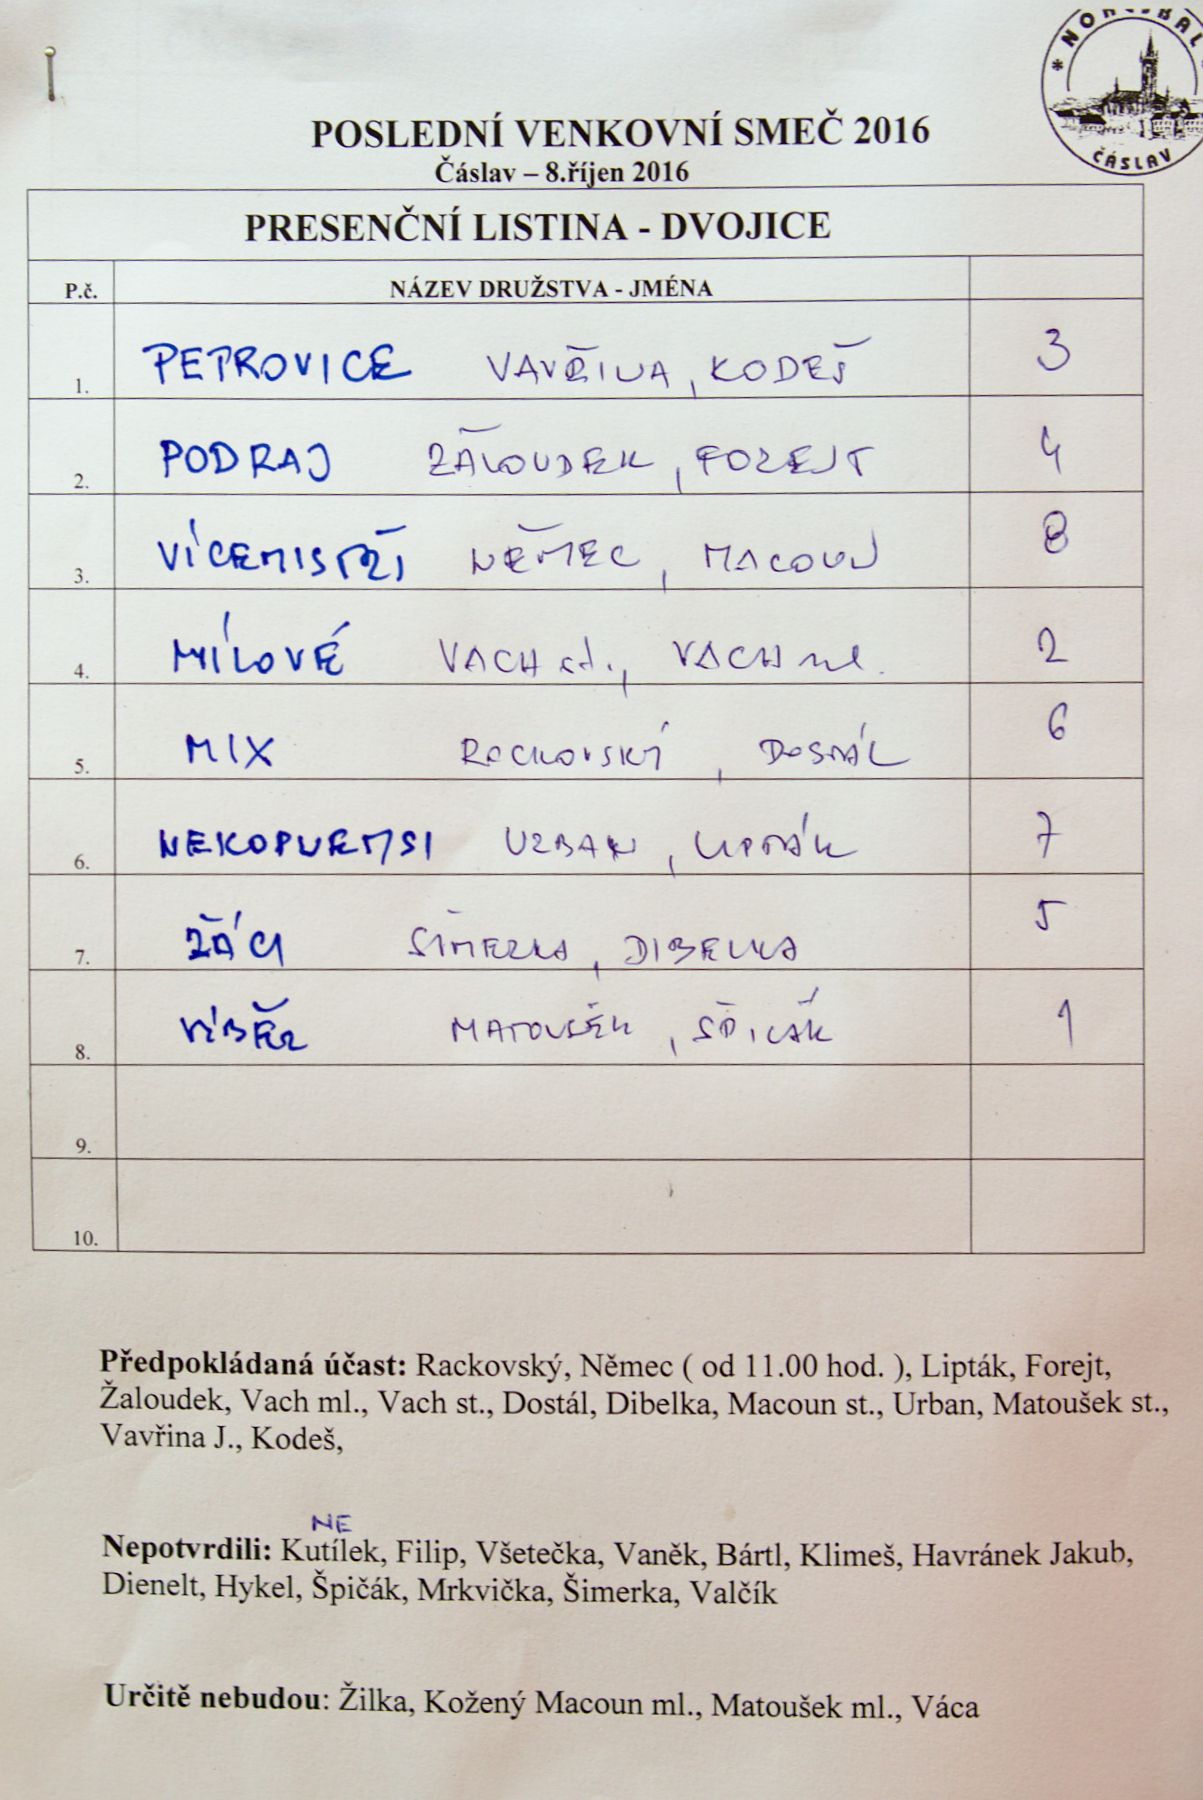 NOHEJBAL
ČÁSLAV
POSLEDNÍ VENKOVNÍ SMEČ 2016
Čáslav – 8.říjen 2016
PRESENČNÍ LISTINA - DVOJICE
P.č. NÁZEV DRUŽSTVA - JMÉNA
1. PETROVICE VAVŘINA, KODEŠ 3
2. PODRAJ ŽALOUDEK, FOREJT 4
3. VÍCEMISTŘI NĚMEC, MACOUN 8
4. MÍLOVÉ VACH st., VACH ml. 2
5. MIX RACKOVSKÝ, DOSTÁL 6
6. NEKOPNEMSI URBAN, LIPTÁK 7
7. ŽÁCI ŠIMERKA, DIBELKA 5
8. VÍBĚR MATOUŠEK, ŠPIČÁK 1
9.
10.
Předpokládaná účast: Rackovský, Němec ( od 11.00 hod. ), Lipták, Forejt,
Žaloudek, Vach ml., Vach st., Dostál, Dibelka, Macoun st., Urban, Matoušek st.,
Vavřina J., Kodeš,
NE
Nepotvrdili: Kutílek, Filip, Všetečka, Vaněk, Bártl, Klimeš, Havránek Jakub,
Dienelt, Hykel, Špičák, Mrkvička, Šimerka, Valčík
Určitě nebudou: Žilka, Kožený Macoun ml., Matoušek ml., Váca